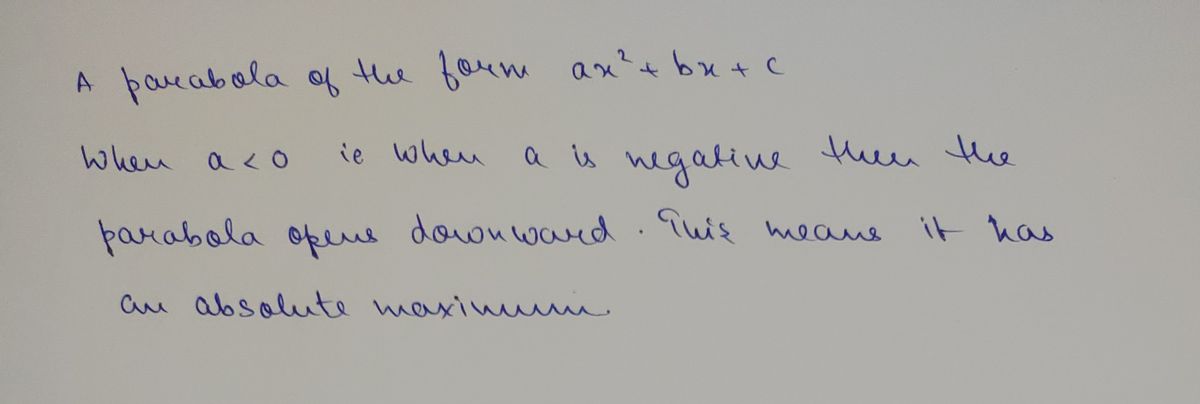 A parabola of the form ax² + bx + c
When a < 0 ie when a is negative then the
parabola opens downward. This means it has
an absolute maximum.